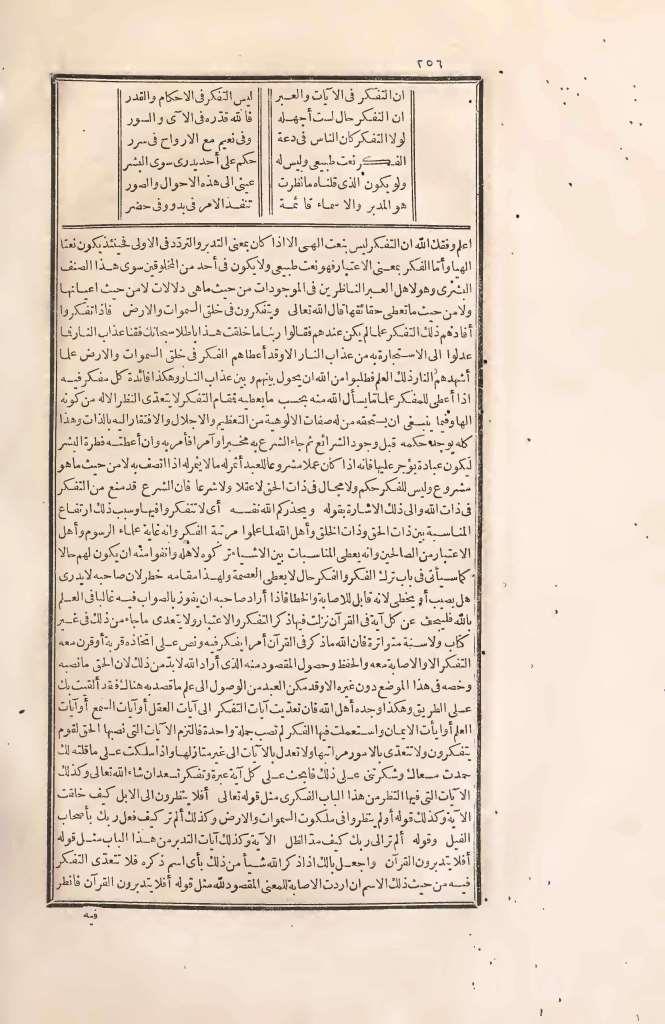 ٢٥٦
ان التفكر فى الآيات والعبر ليس التفكر فى الاحكام والقدر
ان التفكر حال لست أجهله فالله قدّره فى الآى والسور
لولا التفكر كان الناس فى دعة وفى نعيم مع الارواح فى سرر
الفكر نعت طبيعى وليس له حكم على أحد يدرى سوى البشر
ولو يكون الذى قلناه ما نظرت عينى الى هذه الاحوال والصور
هو المدبر والاسماء قائمة تنفذ الامر فى بدو وفى حضر
اعلم وفقك الله ان التفكر ليس بنعت الهى الا اذا كان بمعنى التدبر والتردّد فى الاولى فحينئذ يكون نعتا
الهيا وأما الفكر بمعنى الاعتبار فهو نعت طبيعى ولا يكون فى أحد من المخلوقين سوى هذا الصنف
البشرى وهو لاهل العبر الناظرين فى الموجودات من حيث ماهى دلالات لا من حيث اعيانها
ولا من حيث ما تعطى حقائقها قال الله تعالى ويتفكرون فى خلق السموات والارض فاذا تفكروا
أفادهم ذلك التفكر علما لم يكن عندهم فقالوا ربنا ما خلقت هذا باطلا سبحانك فقنا عذاب النار فما
عدلوا الى الاستجارة به من عذاب النار الا وقد أعطاهم الفكر فى خلق السموات والارض علما
أشهدهم النار ذلك العلم فطلبوا من الله ان يحول بينهم وبين عذاب النار وهكذا فائدة كل مفكر فيه
اذا أعطى للمفكر علما ما يسأل الله منه بحسب ما يعطيه فمقام التفكر لا يتعدّى النظر الاله من كونه
الها وفيما ينبغى ان يستحقه من له صفات الالوهية من التعظيم والاجلال والافتقار اليه بالذات وهذا
كله يوجد حكمه قبل وجود الشرائع ثم جاء الشرع به مخبرا وآمرا فأمر به وان أعطته فطرة البشر
ليكون عبادة يؤجر عليها فانه اذا كان عملا مشروعا للعبد أثمر له ما لا يثمر له اذا اتصف به لا من حيث ما هو
مشروع وليس للفكر حكم ولا مجال فى ذات الحق لا عقلا ولا شرعا فان الشرع قد منع من التفكر
فى ذات الله والى ذلك الاشارة بقوله ويحذركم الله نفسه أى لا تتفكروا فيها وسبب ذلك ارتفاع
المناسبة بين ذات الحق وذات الخلق وأهل الله لما علموا مرتبة الفكر وانه غاية علماء الرسوم وأهل
الاعتبار من الصالحين وانه يعطى المناسبات بين الاشياء تركوه لاهله وأنفوا منه ان يكون لهم حالا
كما سيأتى فى باب ترك الفكر والفكر حال لا يعطى العصمة ولهذا مقامه خطر لان صاحبه لا يدرى
هل يصيب أو يخطى لانه قابل للاصابة والخطا فاذا أراد صاحبه ان يفوز بالصواب فيه غالبا فى العلم
بالله فليبحث عن كل آية فى القرآن نزلت فيها ذكر التفكر والاعتبار ولا يتعدى ما جاء من ذلك فى غير
كتاب ولا سنة متواترة فان الله ما ذكر فى القرآن أمرا يفكر فيه ونص على اتخاذه قربة أو قرن معه
التفكر الا والاصابة معه والحفظ وحصول المقصود منه الذى أراد الله لا بدّ من ذلك لان الحق ما نصبه
وخصه فى هذا الموضع دون غيره الا وقد مكن العبد من الوصول الى علم ما قصد به هناك فقد ألقيت بك
على الطريق وهكذا وجده أهل الله فان تعدّيت آيات التفكر الى آيات العقل أو آيات السمع أو آيات
العلم أو آيات الايمان واستعملت فيها الفكر لم تصب جملة واحدة فالتزم الآيات التى نصبها الحق لقوم
يتفكرون ولا تتعدّى بالامور مراتبها ولا تعدل بالآيات الى غير منازلها واذا سلكت على ما قلته لك
حمدت مسعاك وشكرتنى على ذلك فابحث على كل آية عبرة وتفكر تسعد ان شاء الله تعالى وكذلك
الآيات التى فيها النظر من هذا الباب الفكرى مثل قوله تعالى أفلا ينظرون الى الابل كيف خلقت
الآية وكذلك قوله أولم ينظروا فى ملكوت السموات والارض وكذلك ألم تر كيف فعل ربك بأصحاب
الفيل وقوله ألم تر الى ربك كيف مدّ الظل الآية وكذلك آيات التدبر من هذا الباب مثل قوله
أفلا يتدبرون القرآن واجعل بالك اذا ذكر الله شيأ من ذلك بأى اسم ذكره فلا تتعدّى التفكر
فيه من حيث ذلك الاسم ان اردت الاصابة للمعنى المقصود لله مثل قوله أفلا يتدبرون القرآن فانظر
فيه